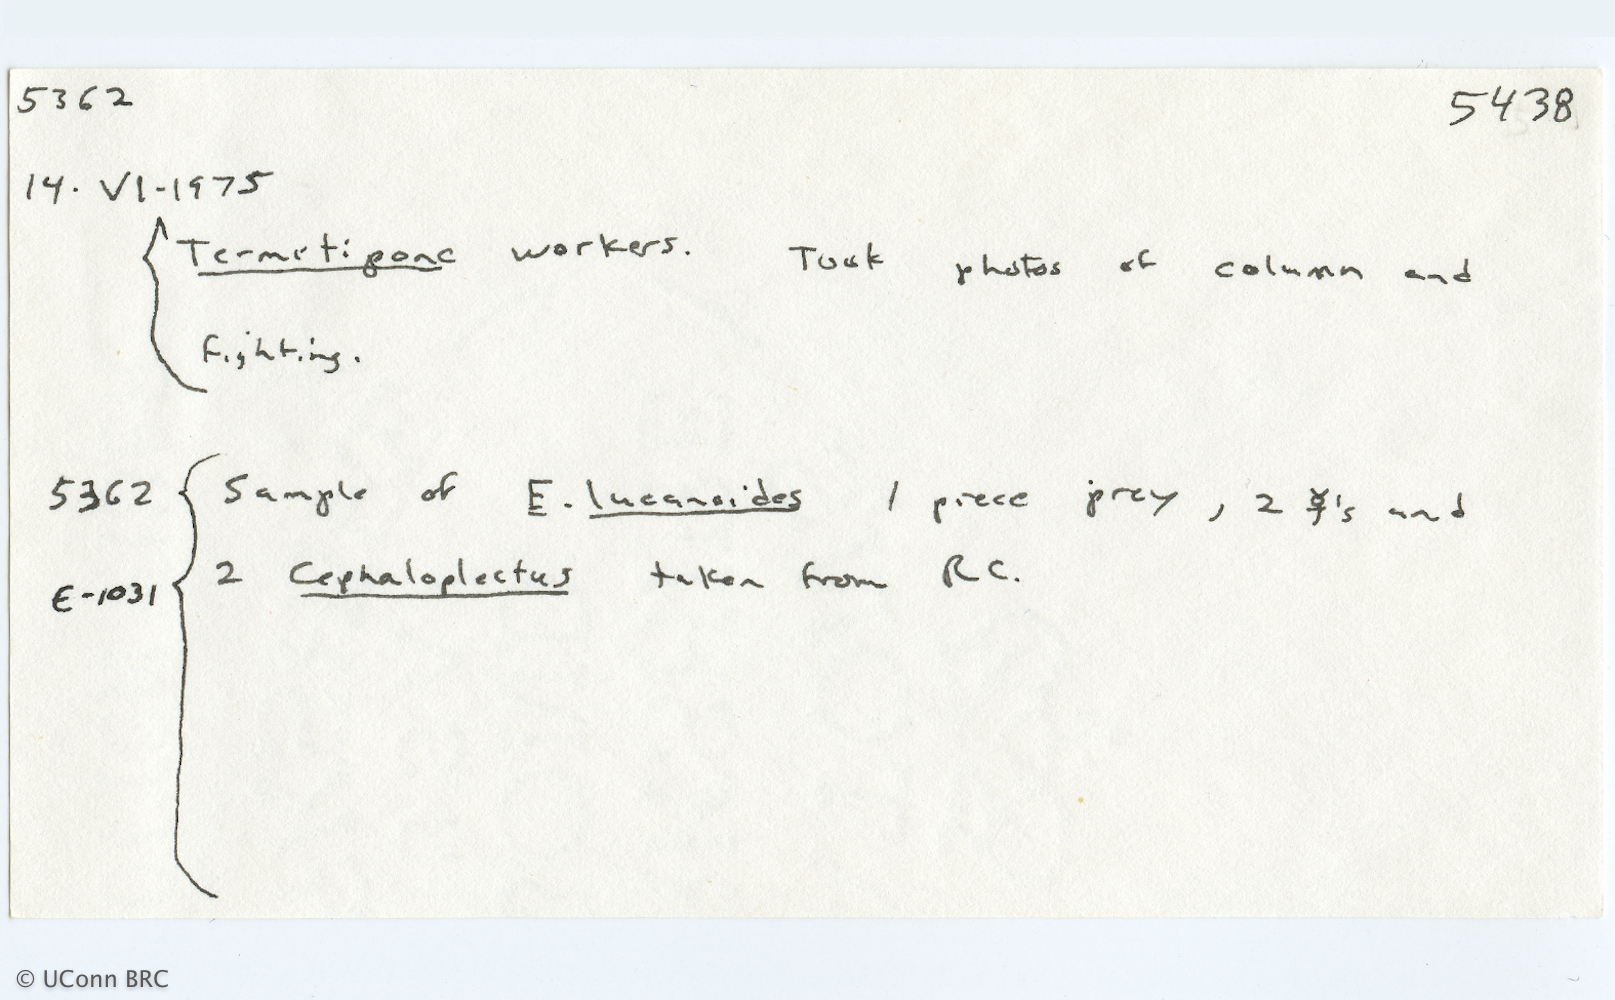 5362 5438
14. VI-1975
Termitipone workers. Took photos of column and
fighting.
5362 Sample of E. lucanoides 1 piece prey, 2 ☿'s and
E-1031 2 Cephaloplectus taken from RC.
© UConn BRC